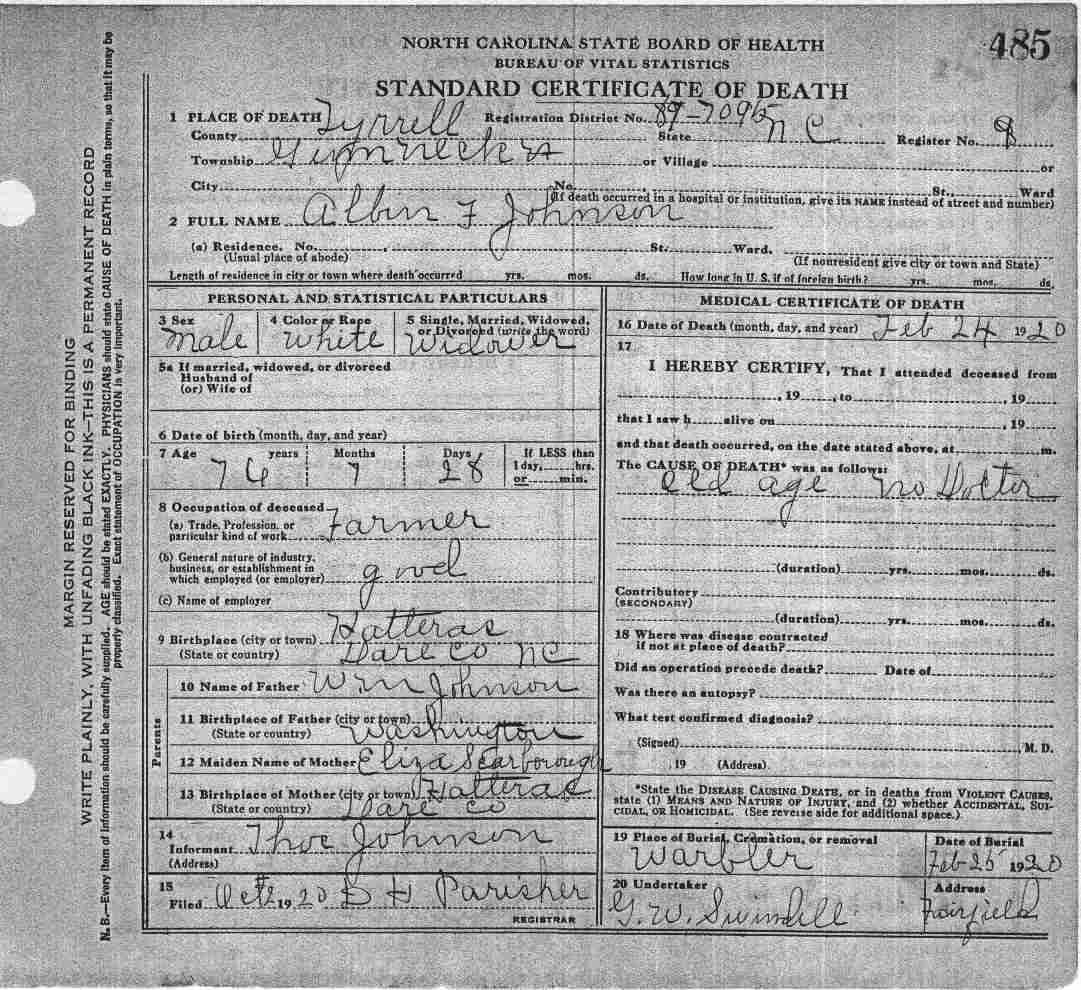 485
NORTH CAROLINA STATE BOARD OF HEALTH
BUREAU OF VITAL STATISTICS
STANDARD CERTIFICATE OF DEATH
1 PLACE OF DEATH Registration District No. 89-7095
County Tyrrell State N C Register No. 8
Township or Village or
City No. St., Ward
(If death occurred in a hospital or institution, give its NAME instead of street and number)
2 FULL NAME Albin F Johnson
(a) Residence. No. St. Ward.
(Usual place of abode) (If nonresident give city or town and State)
Length of residence in city or town where death occurred yrs. mos. ds. How long in U. S. if of foreign birth? yrs. mos. ds.
PERSONAL AND STATISTICAL PARTICULARS
3 Sex 4 Color or Race 5 Single, Married, Widowed, or Divorced (write the word)
Male White Widower
5a If married, widowed, or divorced
Husband of
(or) Wife of
6 Date of birth (month, day, and year)
7 Age years Months Days If LESS than
76 7 28 1 day, hrs.
or min.
8 Occupation of deceased
(a) Trade, Profession, or
particular kind of work Farmer
(b) General nature of industry,
business, or establishment in
which employed (or employer)
(c) Name of employer
9 Birthplace (city or town) Hatteras
(State or country) Dare Co NC
Parents
10 Name of Father Wm Johnson
11 Birthplace of Father (city or town)
(State or country) Washington
12 Maiden Name of Mother Eliza Scarborough
13 Birthplace of Mother (city or town) Hatteras
(State or country) Dare Co
14
Informant Thos Johnson
(Address)
15
Filed Oct 1920 B H Parisher
REGISTRAR
MEDICAL CERTIFICATE OF DEATH
16 Date of Death (month, day, and year) Feb 24 1920
17
I HEREBY CERTIFY, That I attended deceased from
, 19 , to , 19
that I saw h alive on , 19
and that death occurred, on the date stated above, at m.
The CAUSE OF DEATH* was as follows:
old age no Doctor
(duration) yrs. mos. ds.
Contributory
(SECONDARY)
(duration) yrs. mos. ds.
18 Where was disease contracted
if not at place of death?
Did an operation precede death? Date of
Was there an autopsy?
What test confirmed diagnosis?
(Signed) , M. D.
, 19 (Address)
*State the DISEASE CAUSING DEATH, or in deaths from VIOLENT CAUSES,
state (1) MEANS AND NATURE OF INJURY, and (2) whether ACCIDENTAL, SUI-
CIDAL, OR HOMICIDAL. (See reverse side for additional space.)
19 Place of Burial, Cremation, or removal Date of Burial
Warbler Feb 25 1920
20 Undertaker Address
G. W. Swindell Fairfield
MARGIN RESERVED FOR BINDING
WRITE PLAINLY, WITH UNFADING BLACK INK—THIS IS A PERMANENT RECORD
N. B.—Every item of information should be carefully supplied. AGE should be stated EXACTLY. PHYSICIANS should state CAUSE OF DEATH in plain terms, so that it may be
properly classified. Exact statement of OCCUPATION is very important.